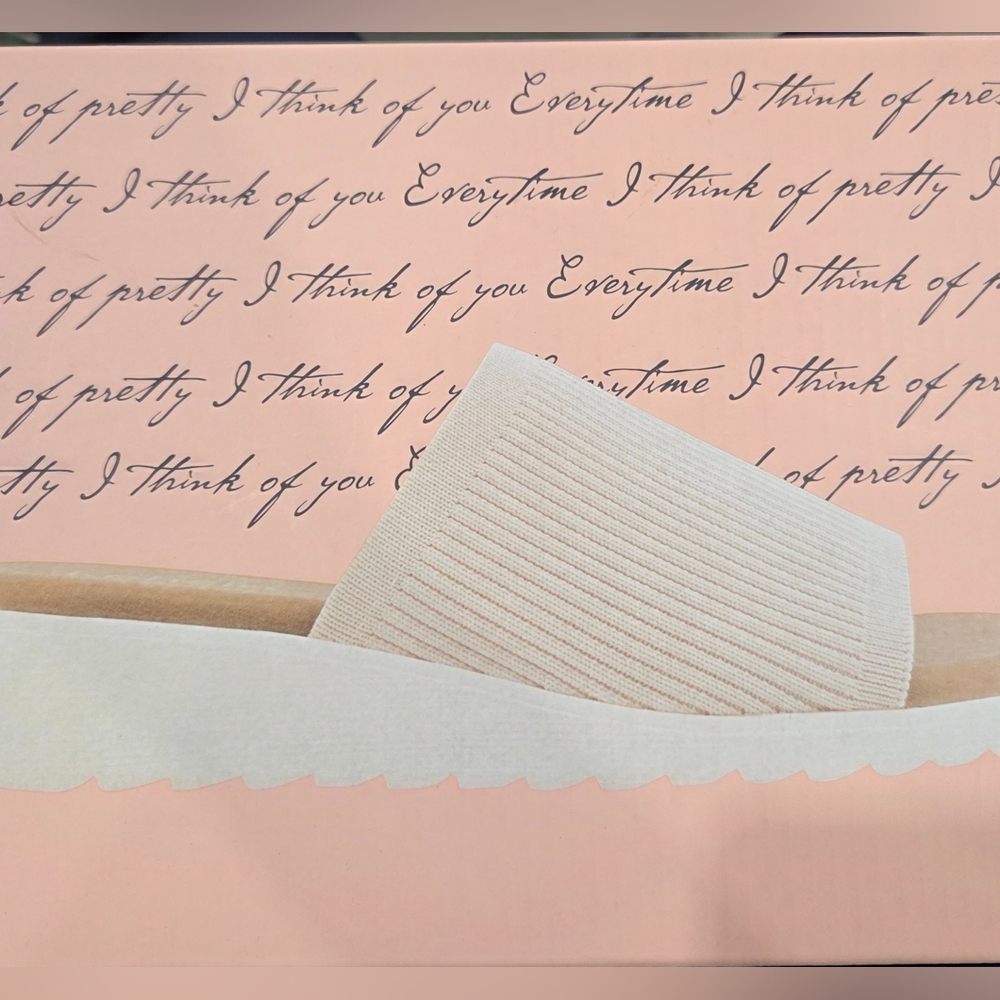 of pretty I think of you Everytime I think of
I think of you Everytime I think of pretty I
of pretty I think of you Everytime I think of
of pretty I think of I think of
I think of you of pretty